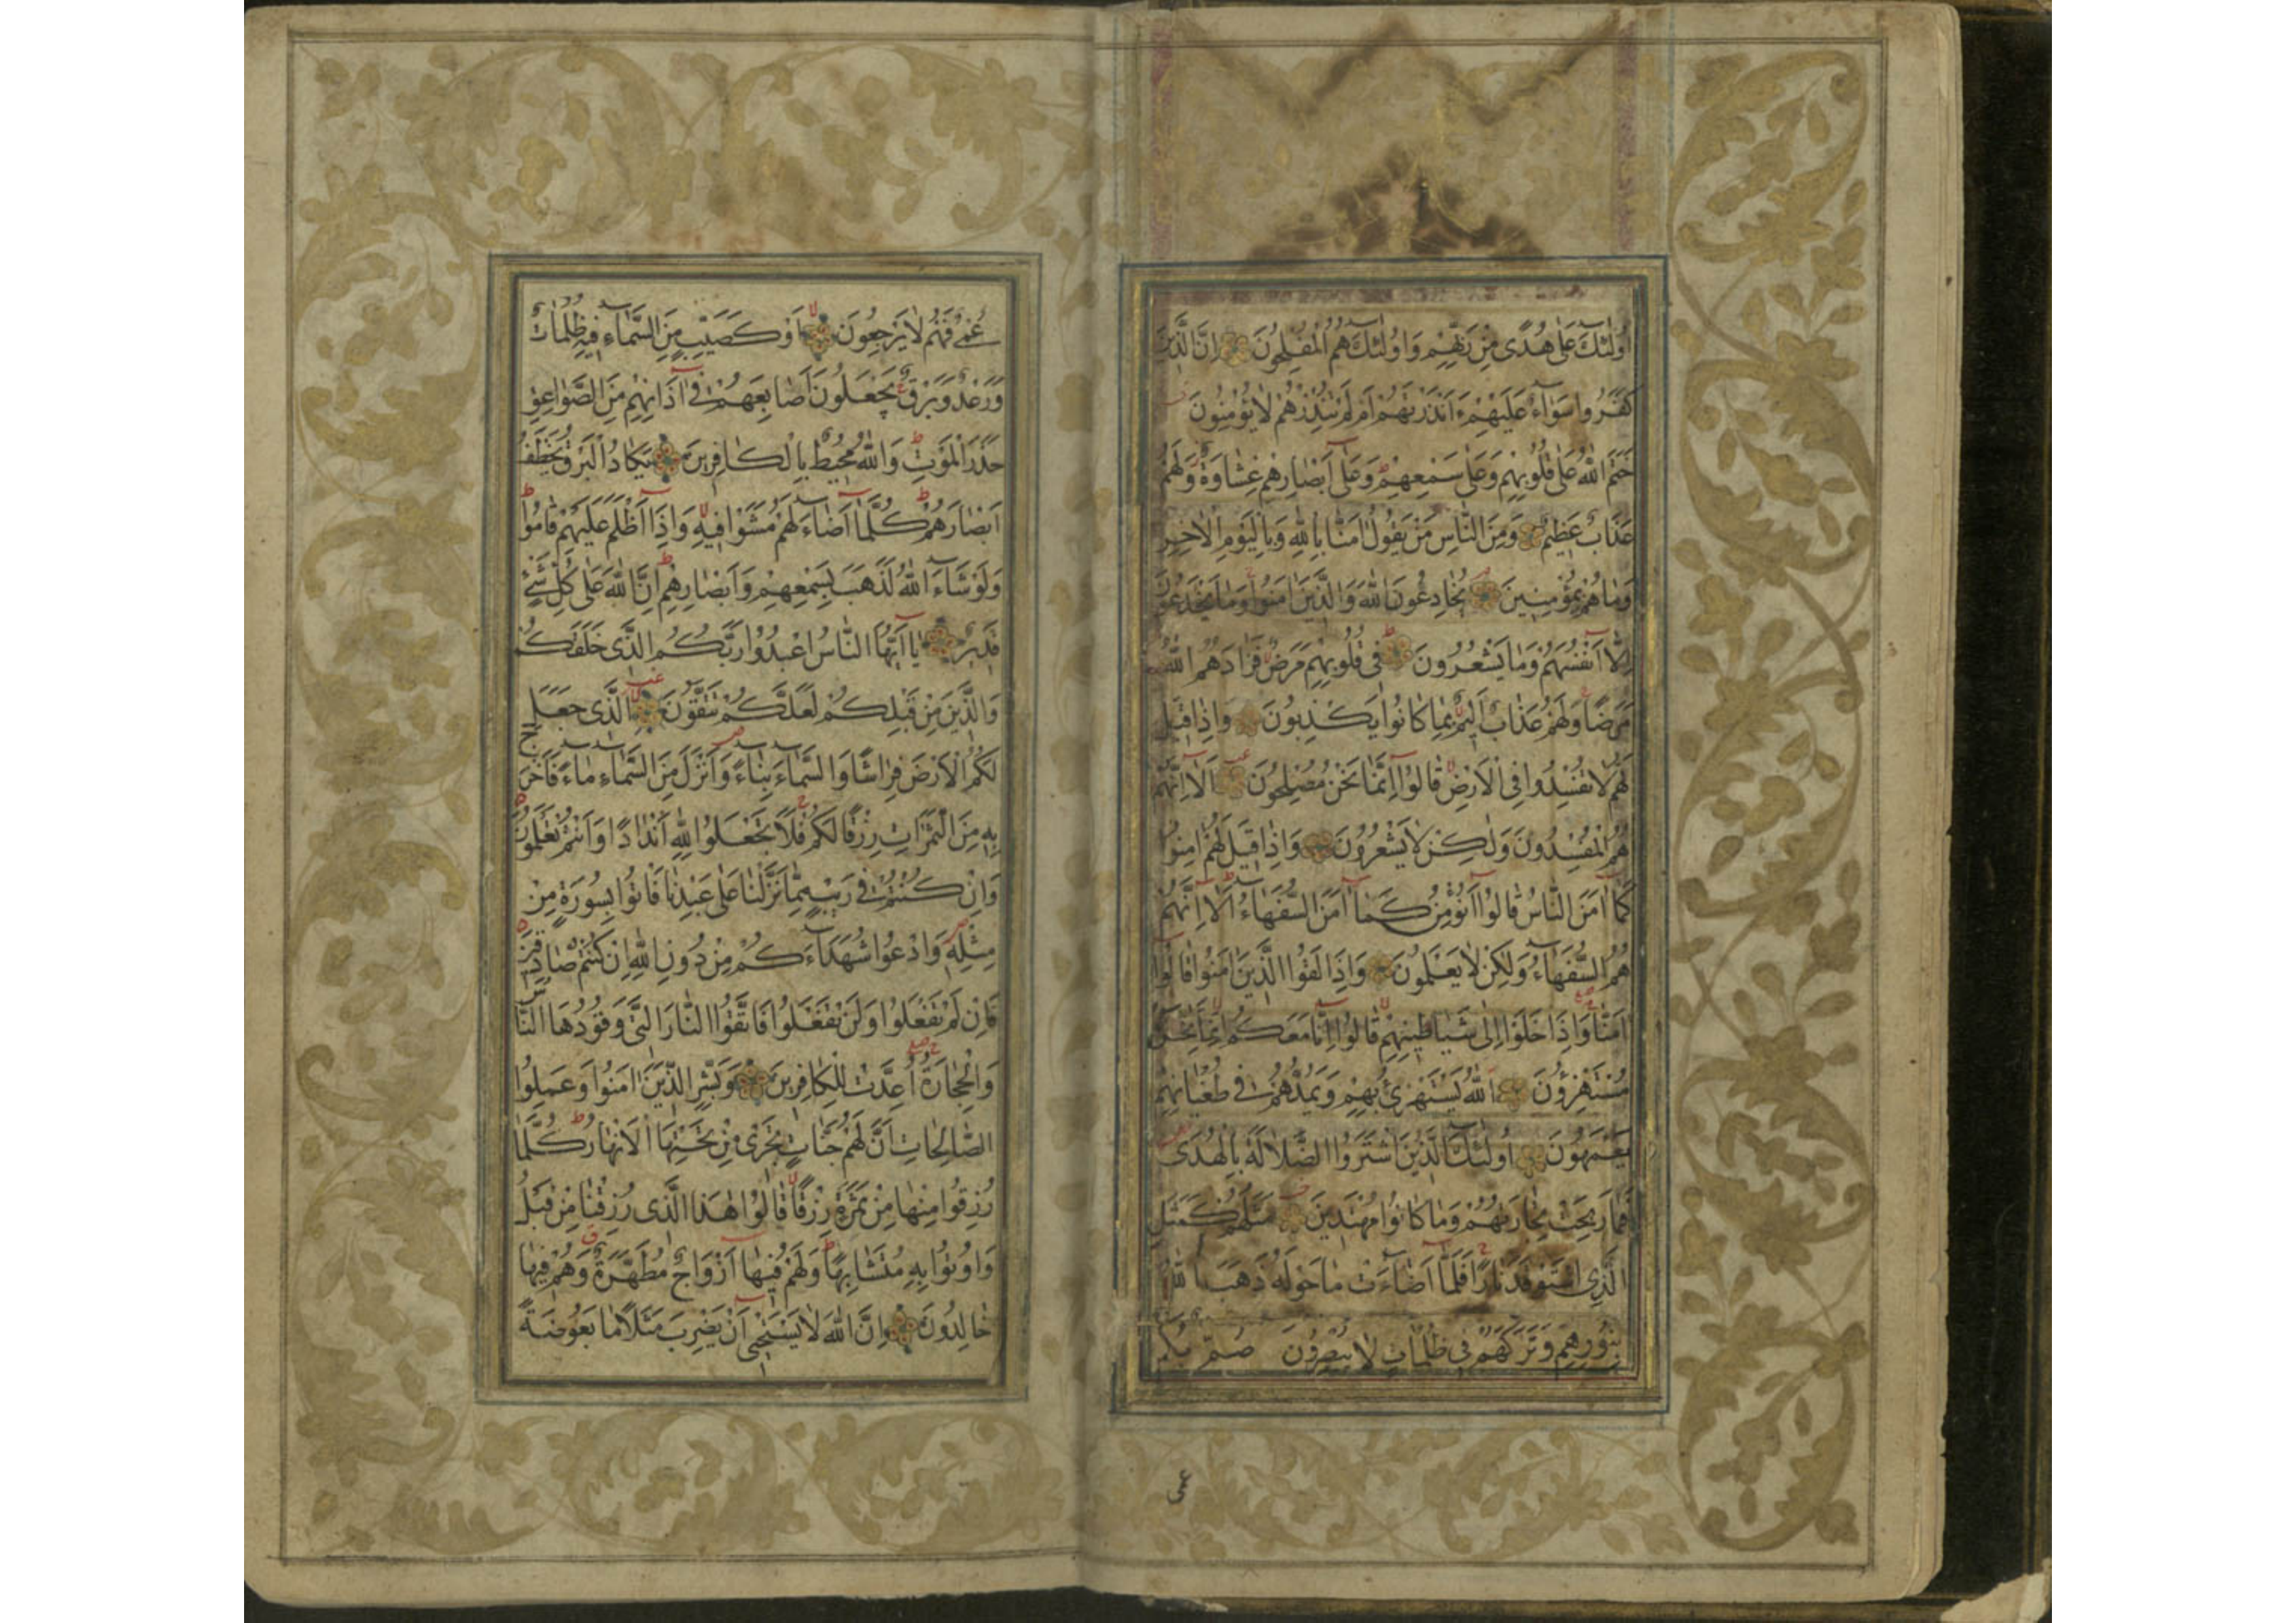 اُولٰئِكَ عَلٰى هُدًى مِنْ رَبِّهِمْ وَاُولٰئِكَ هُمُ الْمُفْلِحُونَ اِنَّ الَّذِينَ
كَفَرُوا سَوَاءٌ عَلَيْهِمْ ءَاَنْذَرْتَهُمْ اَمْ لَمْ تُنْذِرْهُمْ لَا يُؤْمِنُونَ
خَتَمَ اللّٰهُ عَلٰى قُلُوبِهِمْ وَعَلٰى سَمْعِهِمْ وَعَلٰى اَبْصَارِهِمْ غِشَاوَةٌ وَلَهُمْ
عَذَابٌ عَظِيمٌ وَمِنَ النَّاسِ مَنْ يَقُولُ اٰمَنَّا بِاللّٰهِ وَبِالْيَوْمِ الْاٰخِرِ
وَمَا هُمْ بِمُؤْمِنِينَ يُخَادِعُونَ اللّٰهَ وَالَّذِينَ اٰمَنُوا وَمَا يَخْدَعُونَ
اِلَّا اَنْفُسَهُمْ وَمَا يَشْعُرُونَ فِى قُلُوبِهِمْ مَرَضٌ فَزَادَهُمُ اللّٰهُ
مَرَضًا وَلَهُمْ عَذَابٌ اَلِيمٌ بِمَا كَانُوا يَكْذِبُونَ وَاِذَا قِيلَ
لَهُمْ لَا تُفْسِدُوا فِى الْاَرْضِ قَالُوا اِنَّمَا نَحْنُ مُصْلِحُونَ اَلَا اِنَّهُمْ
هُمُ الْمُفْسِدُونَ وَلٰكِنْ لَا يَشْعُرُونَ وَاِذَا قِيلَ لَهُمْ اٰمِنُوا
كَمَا اٰمَنَ النَّاسُ قَالُوا اَنُؤْمِنُ كَمَا اٰمَنَ السُّفَهَاءُ اَلَا اِنَّهُمْ
هُمُ السُّفَهَاءُ وَلٰكِنْ لَا يَعْلَمُونَ وَاِذَا لَقُوا الَّذِينَ اٰمَنُوا قَالُوا
اٰمَنَّا وَاِذَا خَلَوْا اِلٰى شَيَاطِينِهِمْ قَالُوا اِنَّا مَعَكُمْ اِنَّمَا نَحْنُ
مُسْتَهْزِؤُنَ اَللّٰهُ يَسْتَهْزِئُ بِهِمْ وَيَمُدُّهُمْ فِى طُغْيَانِهِمْ
يَعْمَهُونَ اُولٰئِكَ الَّذِينَ اشْتَرَوُا الضَّلَالَةَ بِالْهُدٰى
فَمَا رَبِحَتْ تِجَارَتُهُمْ وَمَا كَانُوا مُهْتَدِينَ مَثَلُهُمْ كَمَثَلِ
الَّذِى اسْتَوْقَدَ نَارًا فَلَمَّا اَضَاءَتْ مَا حَوْلَهُ ذَهَبَ اللّٰهُ
بِنُورِهِمْ وَتَرَكَهُمْ فِى ظُلُمَاتٍ لَا يُبْصِرُونَ صُمٌّ بُكْمٌ
عمى
عُمْىٌ فَهُمْ لَا يَرْجِعُونَ اَوْ كَصَيِّبٍ مِنَ السَّمَاءِ فِيهِ ظُلُمَاتٌ
وَرَعْدٌ وَبَرْقٌ يَجْعَلُونَ اَصَابِعَهُمْ فِى اٰذَانِهِمْ مِنَ الصَّوَاعِقِ
حَذَرَ الْمَوْتِ وَاللّٰهُ مُحِيطٌ بِالْكَافِرِينَ يَكَادُ الْبَرْقُ يَخْطَفُ
اَبْصَارَهُمْ كُلَّمَا اَضَاءَ لَهُمْ مَشَوْا فِيهِ وَاِذَا اَظْلَمَ عَلَيْهِمْ قَامُوا
وَلَوْ شَاءَ اللّٰهُ لَذَهَبَ بِسَمْعِهِمْ وَاَبْصَارِهِمْ اِنَّ اللّٰهَ عَلٰى كُلِّ شَىْءٍ
قَدِيرٌ يَا اَيُّهَا النَّاسُ اعْبُدُوا رَبَّكُمُ الَّذِى خَلَقَكُمْ
وَالَّذِينَ مِنْ قَبْلِكُمْ لَعَلَّكُمْ تَتَّقُونَ الَّذِى جَعَلَ
لَكُمُ الْاَرْضَ فِرَاشًا وَالسَّمَاءَ بِنَاءً وَاَنْزَلَ مِنَ السَّمَاءِ مَاءً فَاَخْرَجَ
بِهِ مِنَ الثَّمَرَاتِ رِزْقًا لَكُمْ فَلَا تَجْعَلُوا لِلّٰهِ اَنْدَادًا وَاَنْتُمْ تَعْلَمُونَ
وَاِنْ كُنْتُمْ فِى رَيْبٍ مِمَّا نَزَّلْنَا عَلٰى عَبْدِنَا فَاْتُوا بِسُورَةٍ مِنْ
مِثْلِهِ وَادْعُوا شُهَدَاءَكُمْ مِنْ دُونِ اللّٰهِ اِنْ كُنْتُمْ صَادِقِينَ
فَاِنْ لَمْ تَفْعَلُوا وَلَنْ تَفْعَلُوا فَاتَّقُوا النَّارَ الَّتِى وَقُودُهَا النَّاسُ
وَالْحِجَارَةُ اُعِدَّتْ لِلْكَافِرِينَ وَبَشِّرِ الَّذِينَ اٰمَنُوا وَعَمِلُوا
الصَّالِحَاتِ اَنَّ لَهُمْ جَنَّاتٍ تَجْرِى مِنْ تَحْتِهَا الْاَنْهَارُ كُلَّمَا
رُزِقُوا مِنْهَا مِنْ ثَمَرَةٍ رِزْقًا قَالُوا هٰذَا الَّذِى رُزِقْنَا مِنْ قَبْلُ
وَاُوتُوا بِهِ مُتَشَابِهًا وَلَهُمْ فِيهَا اَزْوَاجٌ مُطَهَّرَةٌ وَهُمْ فِيهَا
خَالِدُونَ اِنَّ اللّٰهَ لَا يَسْتَحْيِى اَنْ يَضْرِبَ مَثَلًا مَا بَعُوضَةً